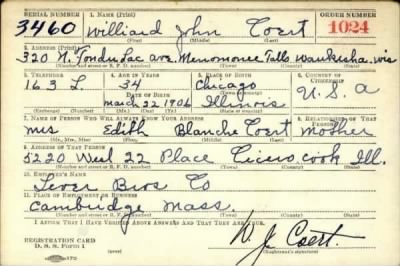 SERIAL NUMBER 1. NAME (Print) ORDER NUMBER
3460 Williard John Coert 1024
(First) (Middle) (Last)
2. ADDRESS (Print)
320 N. Fondu Lac ave. Menomonee Falls, Waukisha, wis
(Number and street or R. F. D. number) (Town) (County) (State)
3. TELEPHONE 4. AGE IN YEARS 5. PLACE OF BIRTH 6. COUNTRY OF CITIZENSHIP
163 L. 34 Chicago
DATE OF BIRTH (Town or county) U.S.A
March 22 1906 Illinois
(Exchange) (Number) (Mo.) (Day) (Yr.) (State or country)
7. NAME OF PERSON WHO WILL ALWAYS KNOW YOUR ADDRESS 8. RELATIONSHIP OF THAT PERSON
mrs Edith Blanche Coert Mother
(Mr., Mrs., Miss) (First) (Middle) (Last)
9. ADDRESS OF THAT PERSON
5220 West 22 Place Cicero, cook Ill.
(Number and street or R. F. D. number) (Town) (County) (State)
10. EMPLOYER'S NAME
Lever Bros Co
11. PLACE OF EMPLOYMENT OR BUSINESS
Cambridge Mass.
(Number and street or R. F. D. number) (Town) (County) (State)
I AFFIRM THAT I HAVE VERIFIED ABOVE ANSWERS AND THAT THEY ARE TRUE.
REGISTRATION CARD
D. S. S. FORM 1
W. J. Coert.
(Registrant's signature)